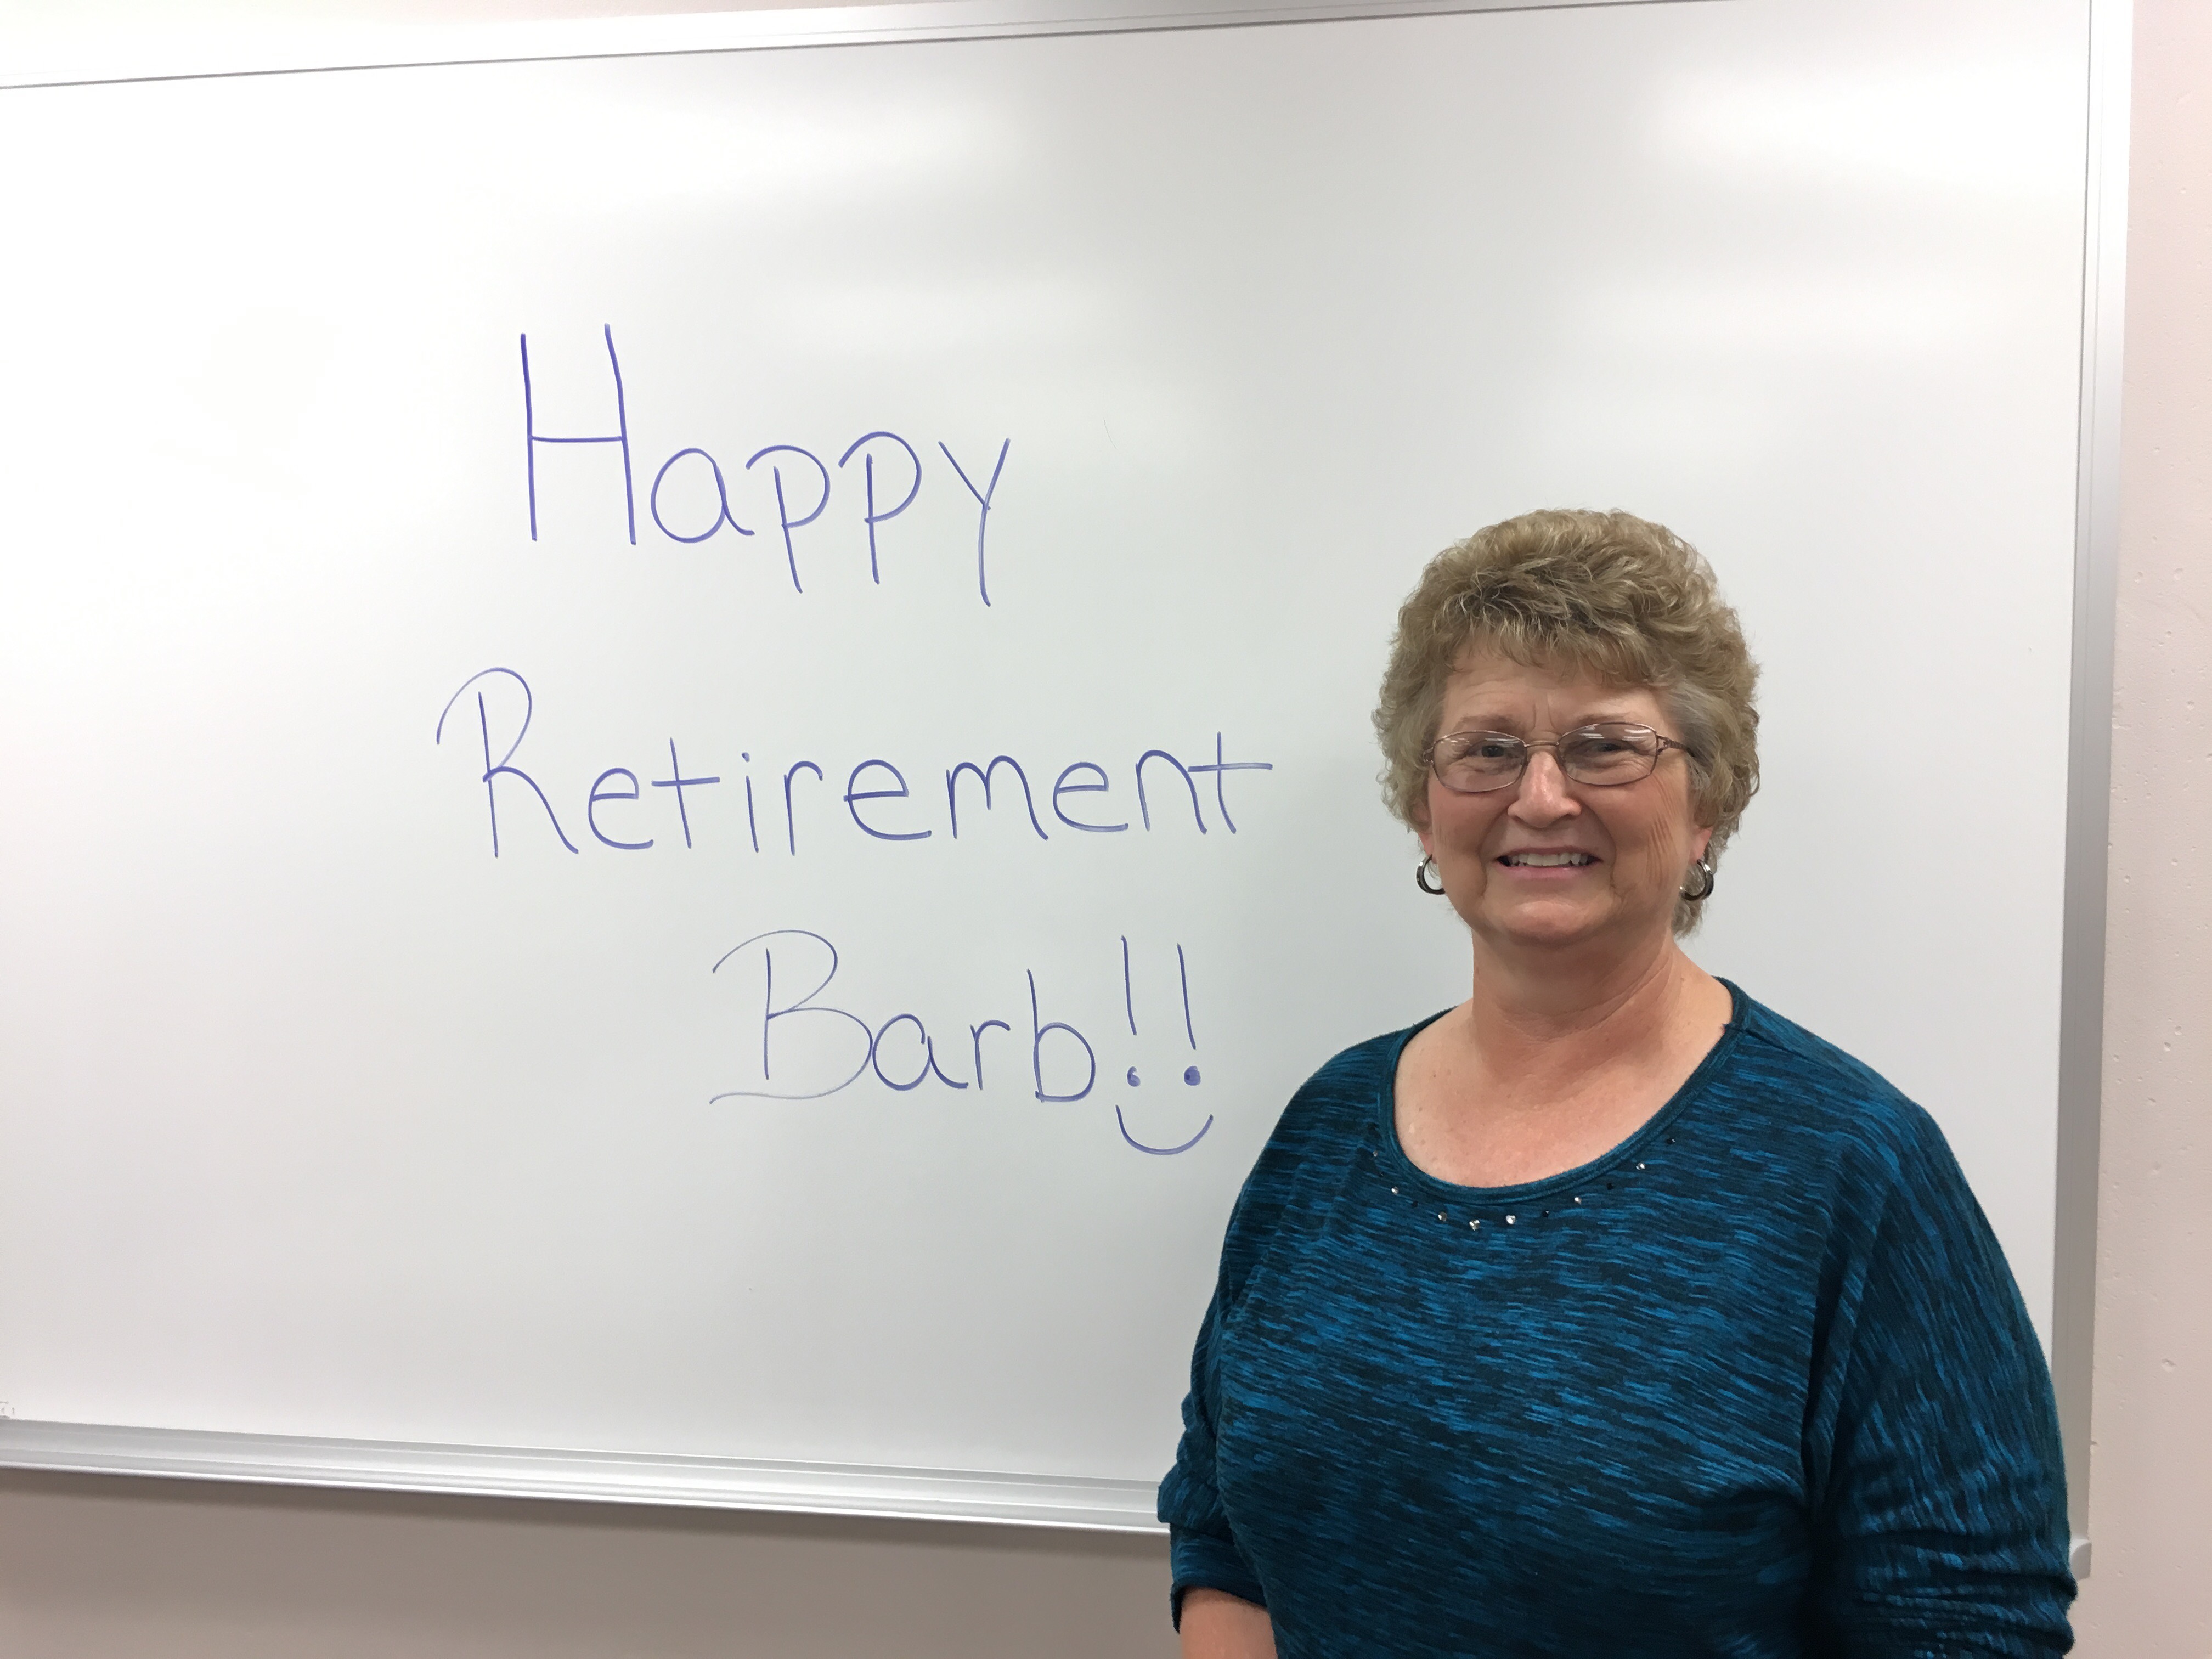 Happy
Retirement
Barb!!